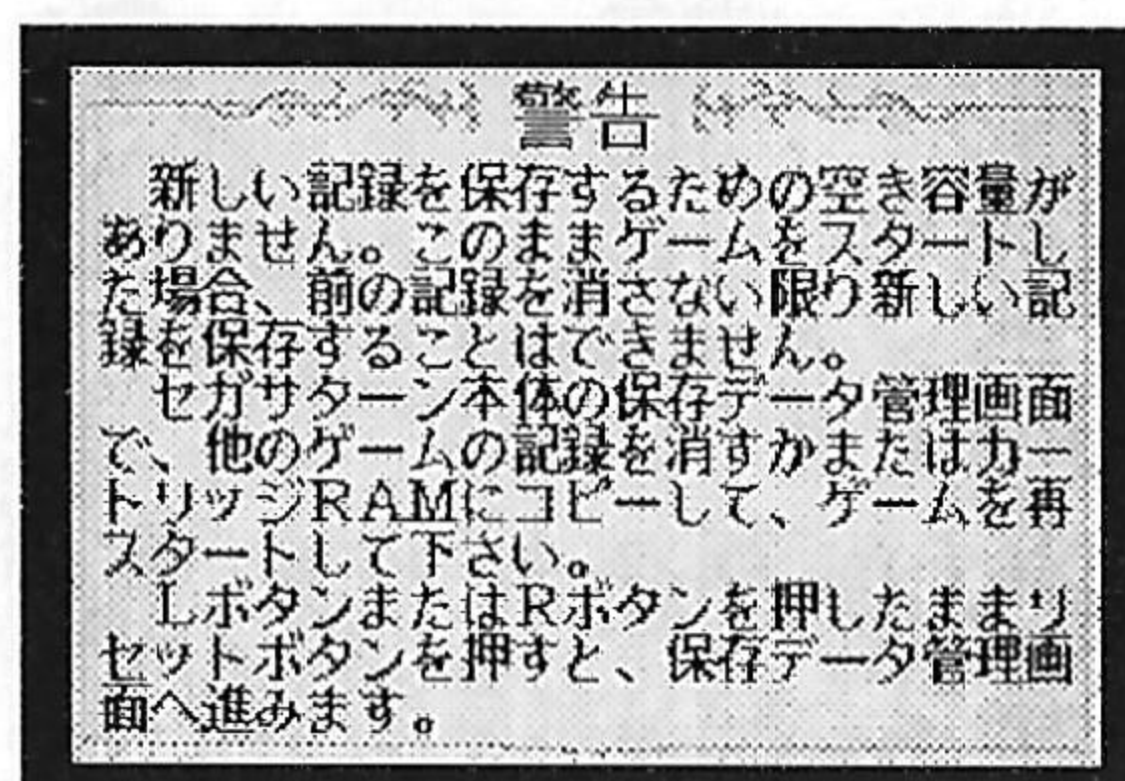 警告
新しい記録を保存するための空き容量が
ありません。このままゲームをスタートし
た場合、前の記録を消さない限り新しい記
録を保存することはできません。
セガサターン本体の保存データ管理画面
で、他のゲームの記録を消すかまたはカー
トリッジRAMにコピーして、ゲームを再
スタートして下さい。
LボタンまたはRボタンを押したままリ
セットボタンを押すと、保存データ管理画
面へ進みます。